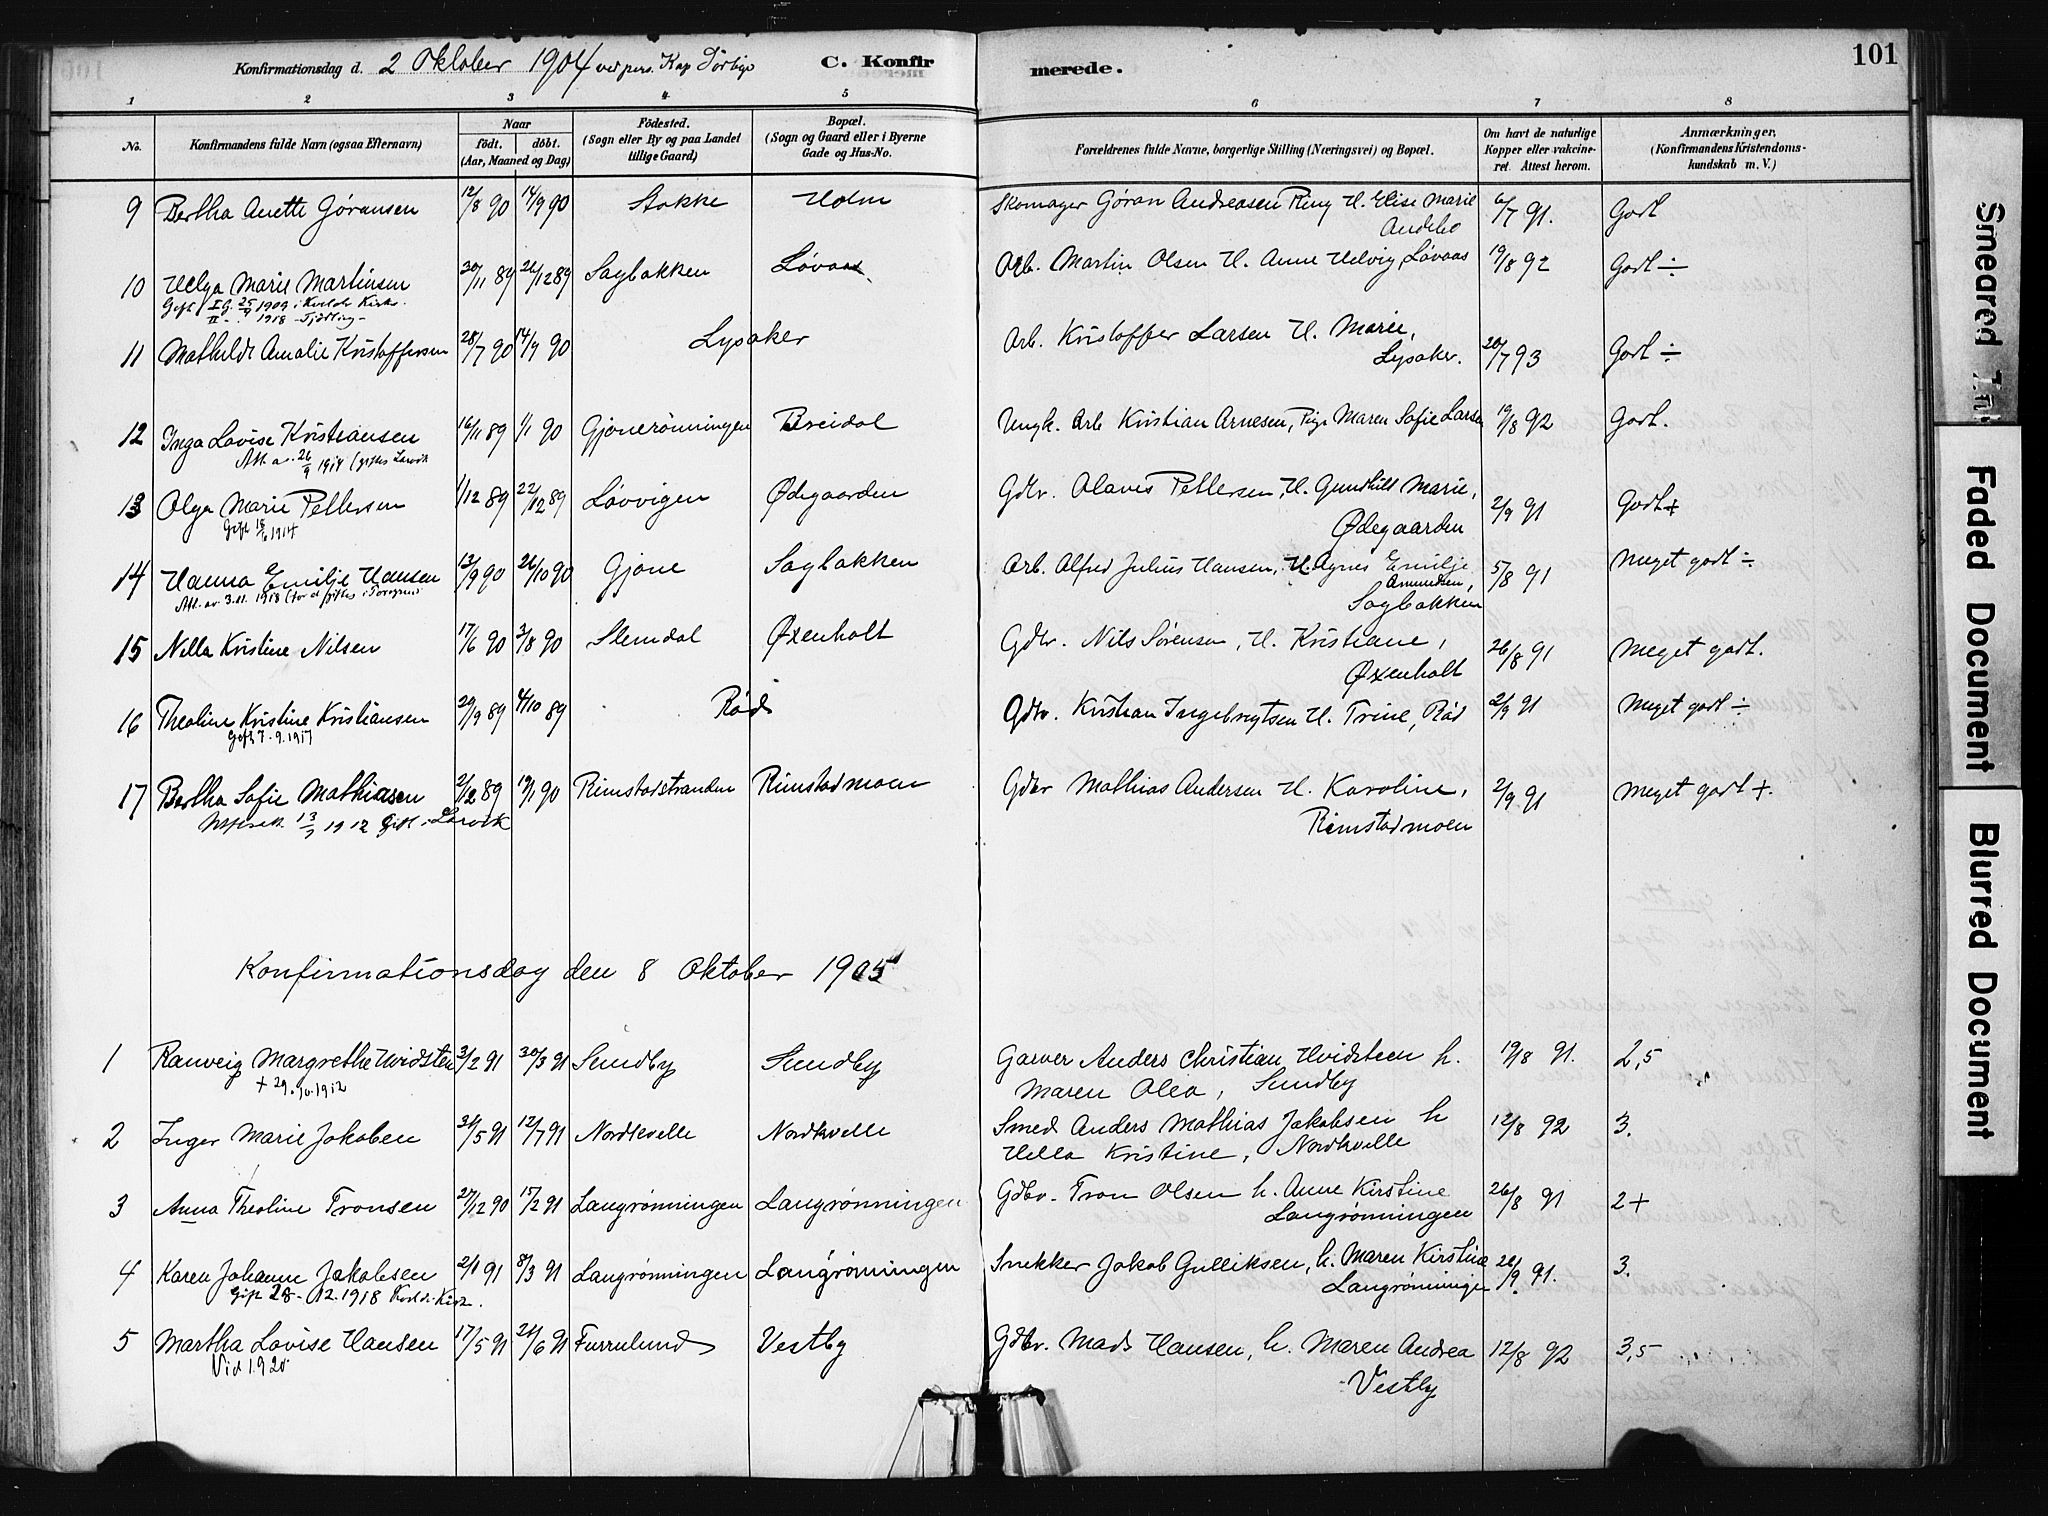 101
Konfirmationsdag d. 2 Oktober 1904 ved pers. Kap C. Konfirmerede.
1 2 3 4 5 6 7 8
No. Konfirmandens fulde Navn (ogsaa Efternavn) Naar födt. döbt. (Aar, Maaned og Dag) Födested. (Sogn eller By og paa Landet tillige Gaard) Bopæl. (Sogn og Gaard eller i Byerne Gade og Hus-No. Forældrenes fulde Navne, borgerlige Stilling (Næringsvei) og Bopæl. Om havt de naturlige Kopper eller vakcineret. Attest herom. Anmærkninger. (Konfirmandens Kristendomskundskab m. V.)
9 Bertha Anette Gøransen 12/8 90 14/9 90 Stokke Holm Skomager Gøran Andreasen Ring H. Elise Marie 6/7 91. Godt
Andebo
10 Helga Marie Martinsen 30/11 89 26/12 89 Sagbakken Løvaas Arb. Martin Olsen H. Anne Helvig, Løvaas 19/8 92 Godt ÷
Gift I g. 25/9 1909 i Kvelde Kirke.
II - 1918 - Tjølling -
11 Mathilde Amalie Kristoffersen 28/7 90 14/9 90 Lysaker Arb. Kristoffer Larsen H. Marie, 20/7 93 Godt ÷
Lysaker.
12 Inga Lovise Kristiansen 16/11 89 1/1 90 Gjonerønningen Breidal Ungk. Arb Kristian Arnesen, Pige Maren Sofie Larsen 19/8 92 Godt.
Att. av 26/9 1914 (giftes Larvik
13 Olga Marie Pettersen 1/12 89 22/12 89 Løvvigen Ødegaarden Gdbr. Olaves Pettersen, H. Gundhild Marie, 2/9 91 Godt+
Ødegaarden
Gift 1914
14 Hanna Emilje Hansen 13/9 90 26/10 90 Gjone Sagbakken Arb. Alfred Julius Hansen, H. Agnes Emilje 5/8 91 Meget godt ÷
Amundsen,
Sagbakken
Att. av 3.11.1918 (for at giftes i Porsgrund
15 Nella Kristine Nilsen 17/6 90 3/8 90 Slemdal Øxenholt Gdbr. Nils Sørensen, H. Kristiane, 26/8 91 Meget godt.
Øxenholt
16 Theoline Kristine Kristiansen 29/9 89 4/10 89 Rød Gdbr. Kristian Ingebrigtsen H. Trine, Rød 2/9 91 Meget godt ÷
Gift 7.9.1917
17 Bertha Sofie Mathiasen 2/12 89 19/1 90 Rimstadstranden Rimstadmoen Gdbr Mathias Andersen H. Karoline, 2/9 91 Meget godt +.
Rimstadmoen
1912 Gift i Larvik
Konfirmationsdag den 8 Oktober 1905
1 Ranveig Margrethe Hvidsten 3/2 91 30/3 91 Sundby Sundby Garver Anders Christian Hvidsteen h. 19/8 91. 2,5
Maren Olea, Sundby
+ 29.10.1912
2 Inger Marie Jakobsen 31/5 91 12/7 91 Nordkvelle Nordkvelle Smed Anders Mathias Jakobsen h 12/8 92 3.
Hella Kristine, Nordkvelle
3 Anna Theoline Tronsen 27/12 90 15/2 91 Langrønningen Langrønningen Gdbr. Tron Olsen h. Anne Kirstine 26/8 91 2+
Langrønningen
4 Karen Johanne Jakobsen 2/1 91 8/3 91 Langrønningen Langrønningen Snekker Jakob Gulliksen, h. Maren Kirstine 26/9 91. 3.
Langrønningen
Gift 28.12.1918 Kvelde Kirke.
5 Martha Lovise Hansen 17/5 91 21/6 91 Furrulund Vestby Gdbr. Mads Hansen, h. Maren Andrea 12/8 92 3,5
Vestby
Vid 1920
Smeared
Faded Document
Blurred Document